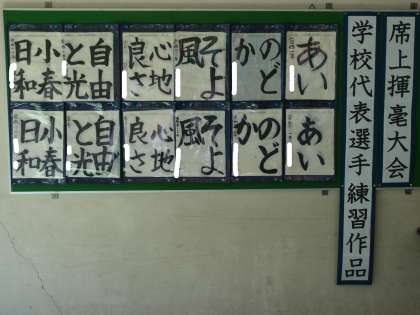 席上揮毫大会
学校代表選手練習作品
あい
のど
か
そよ
風
心地
良さ
自由
と光
小春
日和
あい
のど
か
そよ
風
心地
良さ
自由
と光
小春
日和